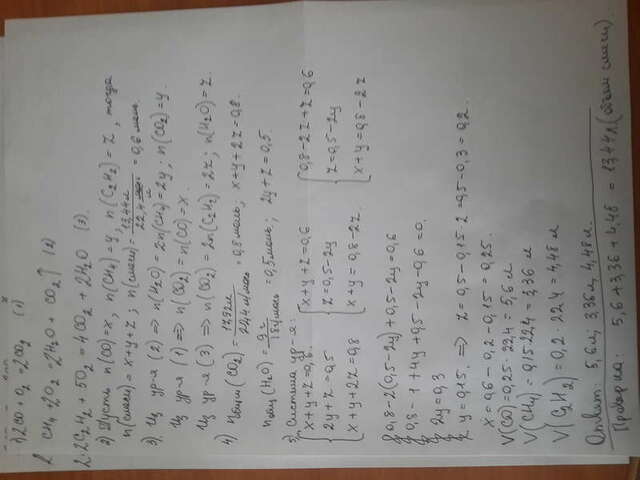 1) 2CO + O₂ = 2CO₂ (1)
2 CH₄ + 2O₂ = 2H₂O + CO₂↑ (2)
2. 2C₂H₂ + 5O₂ = 4CO₂ + 2H₂O (3).
2) Пусть n(CO)=x, n(CH₄)=y, n(C₂H₂)=z, тогда
n(смеси)=x+y+z; n(смеси)= 13,44 л / 22,4 = 0,6 моль.
3). Из ур-я (2) => n(H₂O)=2n(CH₄)=2y; n(CO₂)=y.
Из ур-я (1) => n(CO₂)=n(CO)=x.
Из ур-я (3) => n(CO₂)=2n(C₂H₂)=2z; n(H₂O)=z.
4) nобщ(CO₂)= 17,92л / 22,4 л/моль = 0,8 моль, x+y+2z=0,8.
nобщ(H₂O)= 9 г / 18 г/моль = 0,5 моль; 2y+z=0,5.
5) Система ур-й:
{ x+y+z=0,6 { x+y+z=0,6 { 0,8-2z+z=0,6
2y+z=0,5 z=0,5-2y z=0,5-2y
x+y+2z=0,8 x+y=0,8-2z. x+y=0,8-2z
0,8-2(0,5-2y)+0,5-2y=0,6
0,8-1+4y+0,5-2y-0,6=0.
2y=0,3
y=0,15. => z=0,5-0,15·2=0,5-0,3=0,2.
x=0,6-0,2-0,15=0,25.
V(CO)=0,25·22,4=5,6 л
V(CH₄)=0,15·22,4=3,36 л
V(C₂H₂)=0,2·22,4=4,48 л
Ответ: 5,6л; 3,36л; 4,48л.
Проверка: 5,6+3,36+4,48=13,44л (объем смеси).